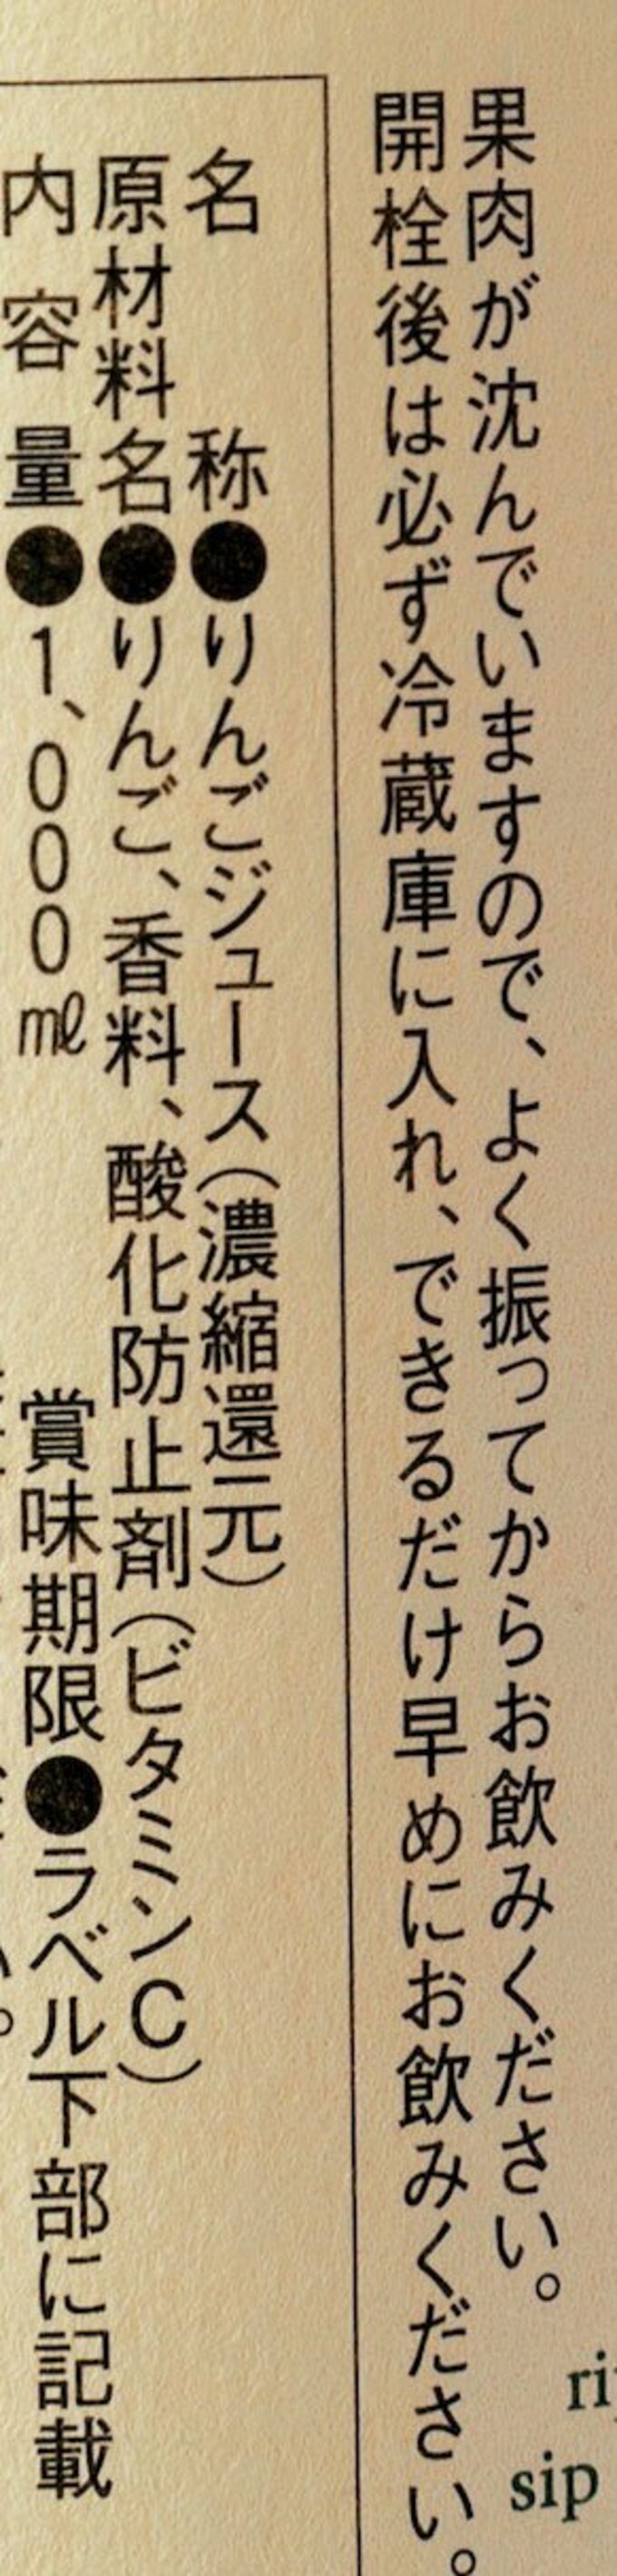 果肉が沈んでいますので、よく振ってからお飲みください。
開栓後は必ず冷蔵庫に入れ、できるだけ早めにお飲みください。
名称●りんごジュース(濃縮還元)
原材料名●りんご、香料、酸化防止剤(ビタミンC)
内容量●1,000㎖ 賞味期限●ラベル下部に記載
sip